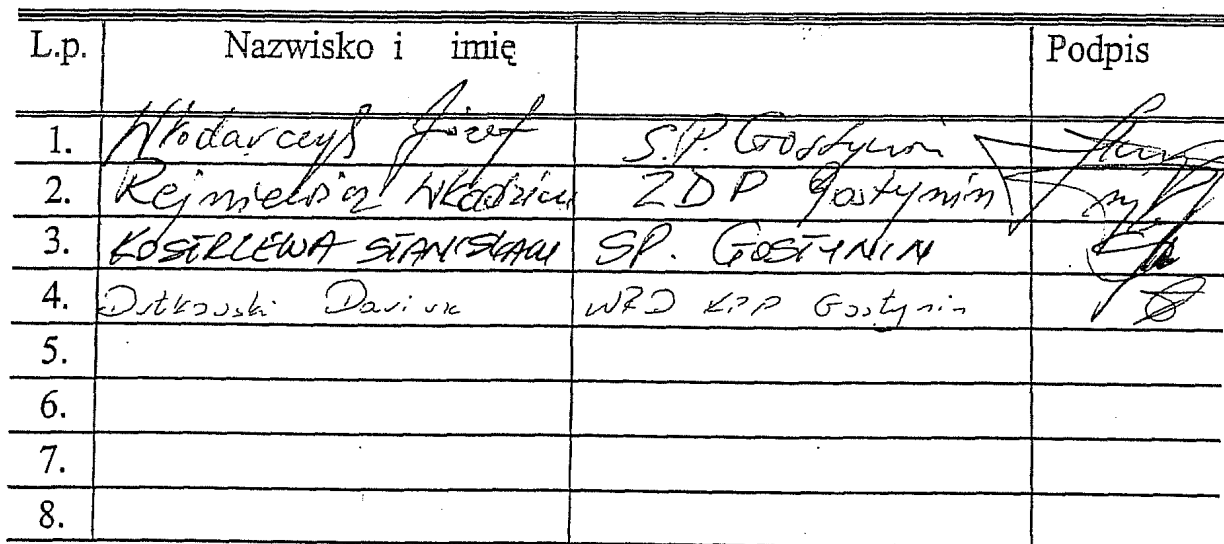 L.p. Nazwisko i imię Podpis
1. Włodarczyk Józef S.P. Gostynin
2. Rejniewicz Włodzim ZDP Gostynin
3. KOSTRZEWA STANISŁAW SP. GOSTYNIN
4. Dutkowski Dariusz WRD KPP Gostynin
5.
6.
7.
8.